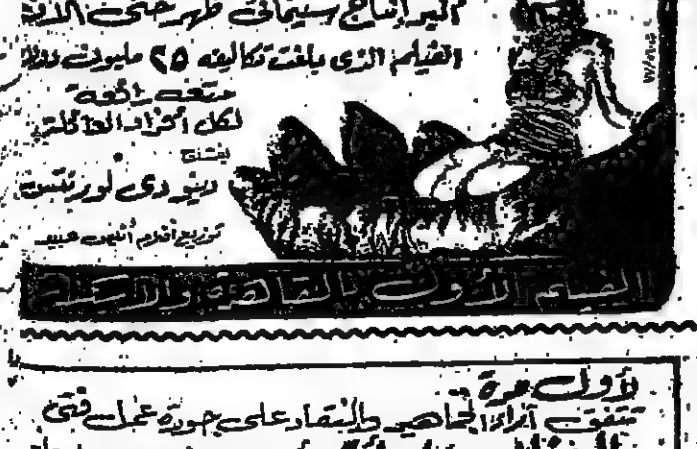 أكبر إنتاج سينمائى ظهر حتى الآن
الفيلم الذى بلغت تكاليفه ٢٥ مليون دولار
متعة رائعة
لكل أفراد العائلة
إنتاج
دينو دى لورنتيس
توزيع أفلام أنيس عبيد
الفيلم الأول بالقاهرة والاسكندرية
لأول مرة ..
تتفق آراء الجماهير والنقاد على جودة عمل فنى